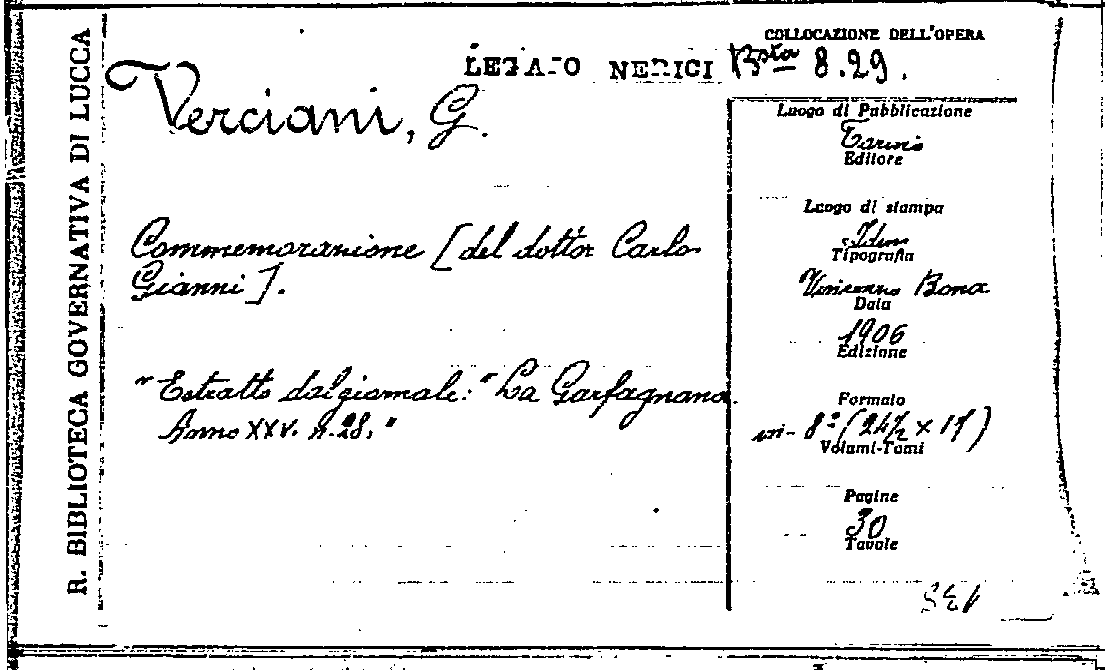 R. BIBLIOTECA GOVERNATIVA DI LUCCA
COLLOCAZIONE DELL'OPERA
LEGATO NERICI Bsta 8.29.
Verciani, G.
Luogo di Pubblicazione
Torino
Editore
Luogo di stampa
Idem
Tipografia
Commemorazione [del dottor Carlo
Gianni].
Vincenzo Bona
Data
1906
Edizione
"Estratto dal giornale: "La Garfagnana.
Anno XXV. n. 28."
Formato
in- 8° (24½ x 17)
Volumi-Tomi
Pagine
30
Tavole